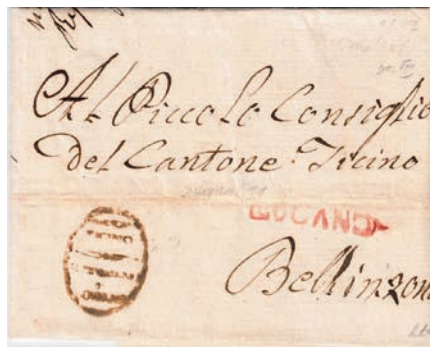 Al Piccolo Consiglio
Del Cantone Ticino
LUGANO
Bellinzona